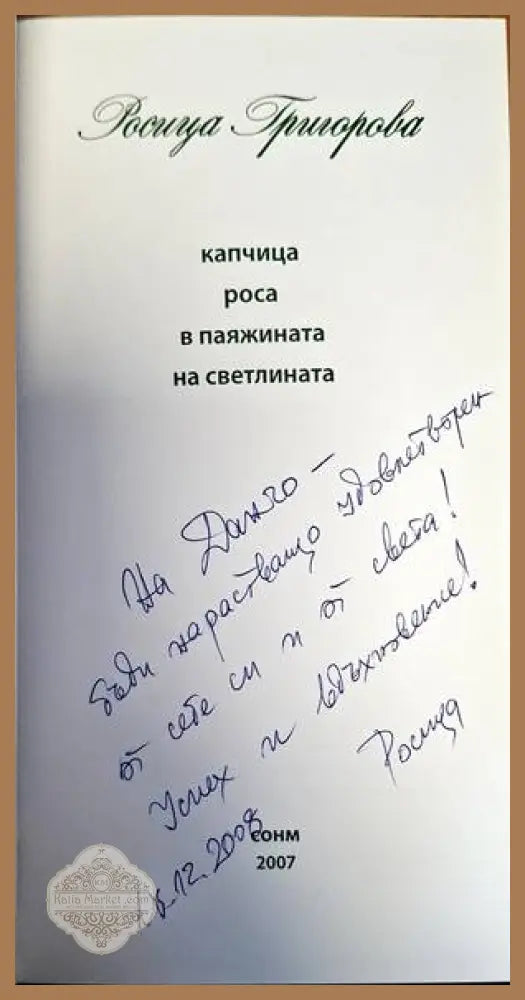 Росица Григорова
капчица
роса
в паяжината
на светлината
На Данчо –
бъди нарастващо удовлетворен
от себе си и от света!
Успех и вдъхновение!
Росица
6.12.2008
СОНМ
2007
Katia Market.com